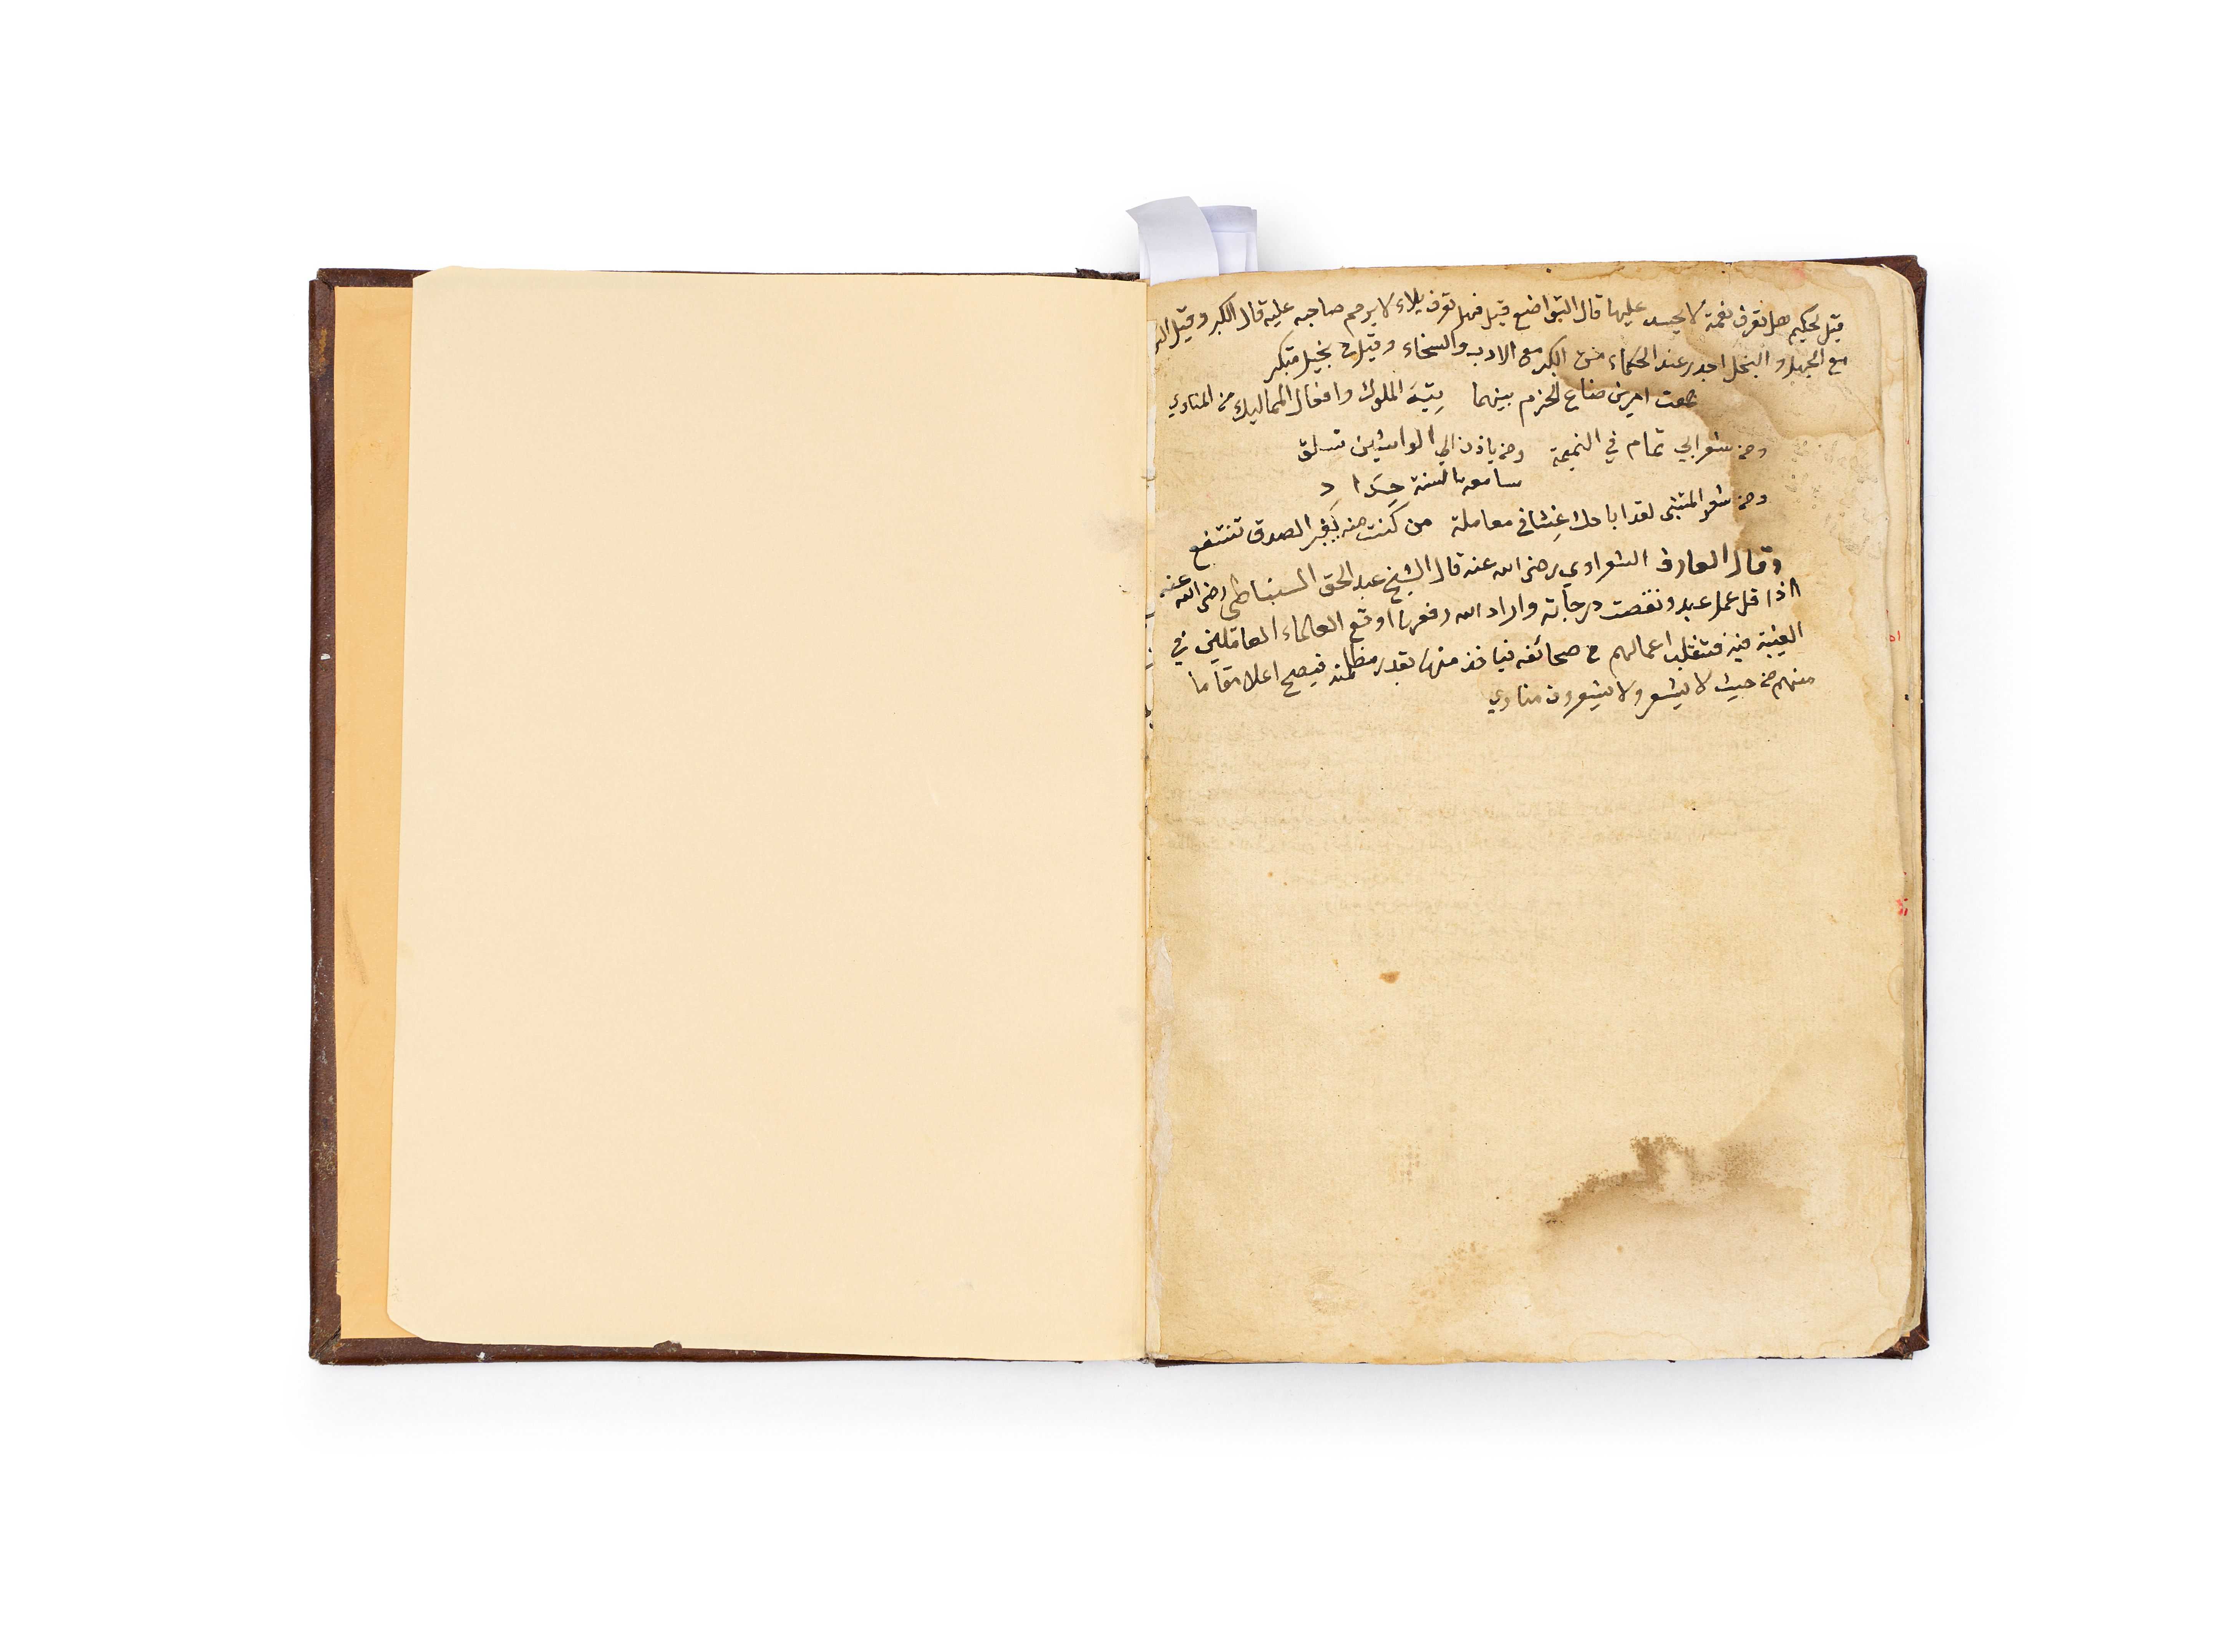 قيل لحكيم هل تعرف نعمة لا يحسد عليها قال التواضع قيل فهل تعرف بلاء لا يرحم صاحبه عليه قال الكبر وقيل
مع الجهل والبخل احمد عند الحكماء من الكبر مع الادب والسخاء وقيل في بخيل متكبر
جمعت امرين ضاع الحزم بينهما تيه الملوك وافعال المماليك من المناوي
ومن شعر ابي تمام في النميمة ومن ياذن الي الواشين تسلق
سامعه بالسنة حداد
ومن شعر المتنبي لقد اباحك غشا في معاملة من كنت منه بغير الصدق تنتفع
وقال العارف الشعراوي رضي الله عنه قال الشيخ عبد الحق السنباطي رضي الله عنه
اذا قل عمل عبد ونقصت درجاته واراد الله رفعها اوقع العلماء العاملين في
الغيبة فيه فتنقلب اعمالهم في صحائفه فياخذ منها بقدر مظلمته فيصبح اعلا مقاما
منهم من حيث لا يشعر ولا يشعرون مناوي